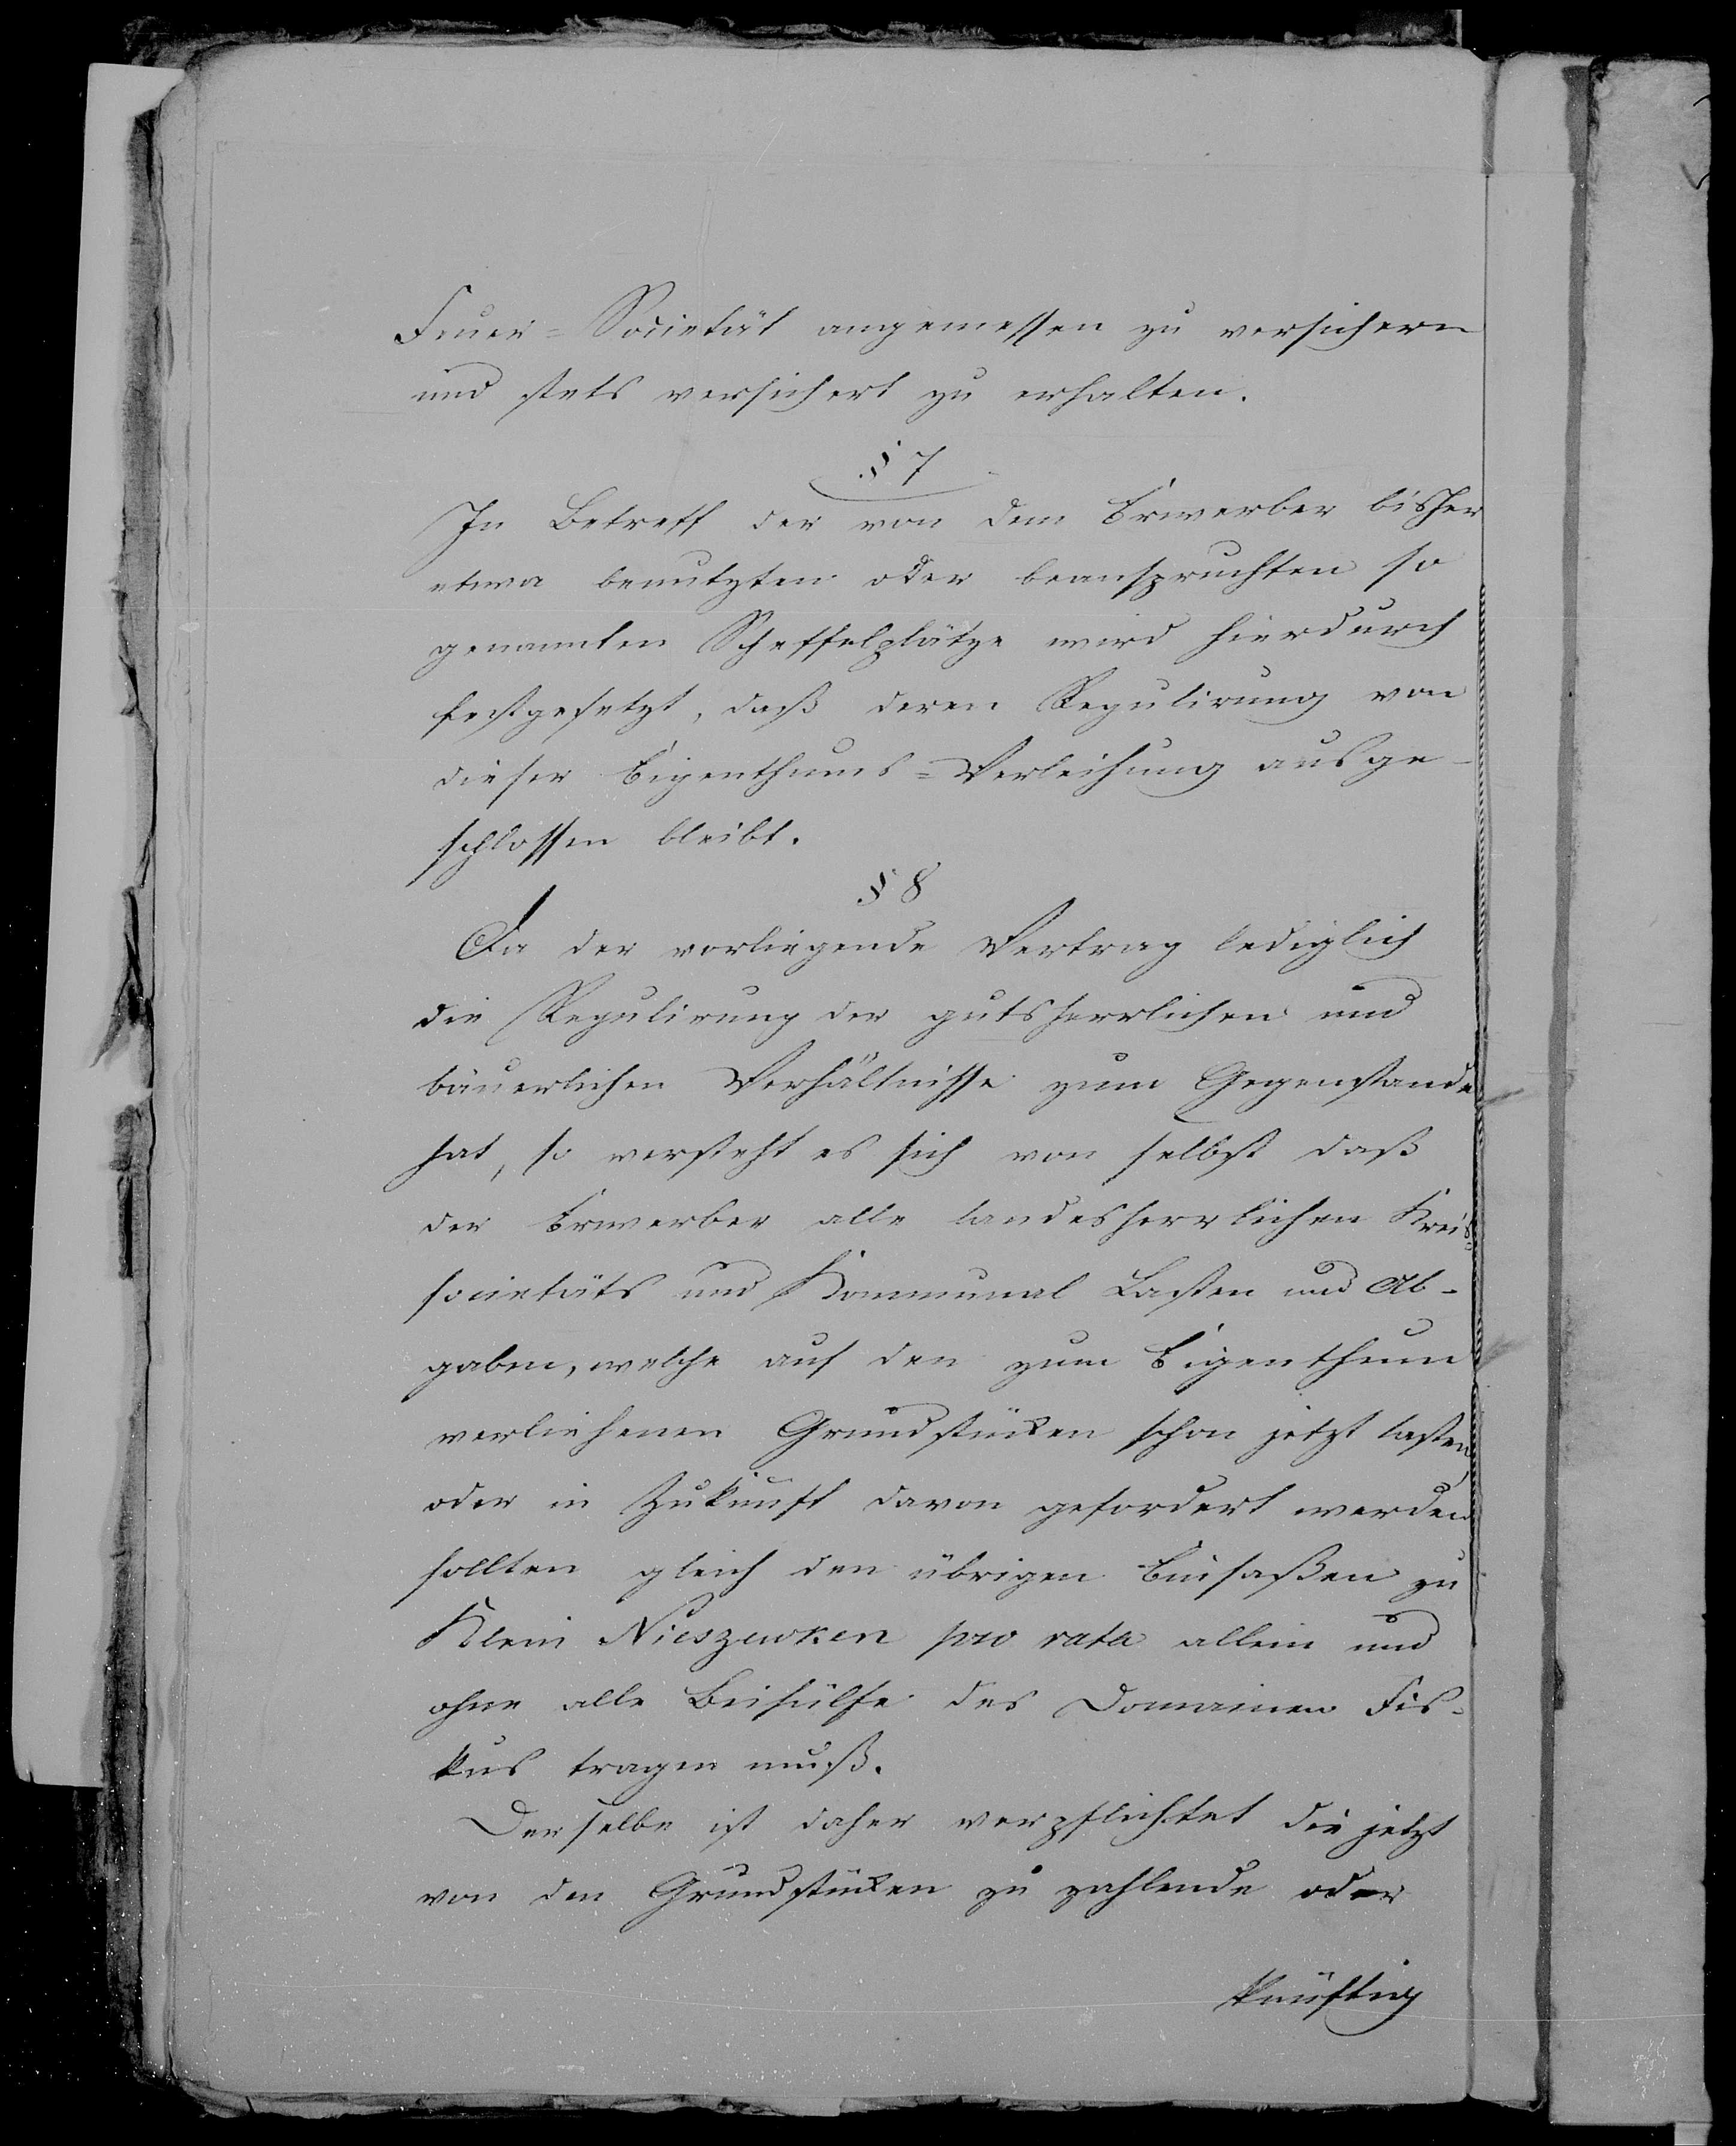 Feuer=Societät angemessen zu versichern
und stets versichert zu erhalten.
§ 7
In Betreff der von dem Erwerber bisher
etwa benutzten oder beanspruchten so
genannten Scheffelplätze wird hierdurch
festgesetzt, daß deren Regulirung von
dieser Eigenthums=Verleihung ausge-
schlossen bleibt.
§ 8
Da der vorliegende Vertrag lediglich
die Regulirung der gutsherrlichen und
bäuerlichen Verhältnisse zum Gegenstande
hat, so versteht es sich von selbst daß
der Erwerber alle landesherrlichen Kreis
societäts und Kommunal Lasten und Ab-
gaben, welche auf den zum Eigenthum
verliehenen Grundstücken schon jetzt lasten
oder in Zukunft davon gefordert werden
sollten gleich den übrigen Einsaßen zu
Klein Nieszewken pro rata allein und
ohne alle Beihülfe des Domainen Fis-
kus tragen muß.
Derselbe ist daher verpflichtet die jetzt
von den Grundstücken zu zahlende oder
künftig